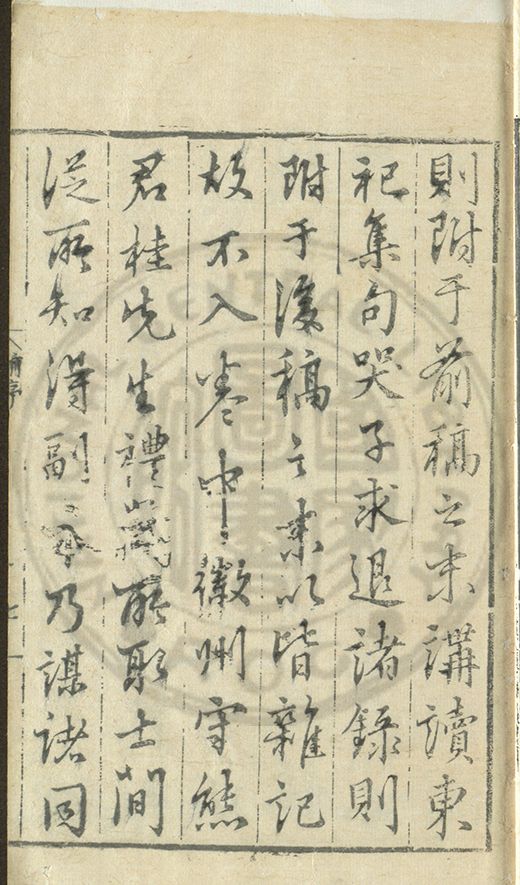 則附于前稿之末講讀東
祀集句哭子求退諸錄則
附于後稿之末以皆雜記
故不入卷中徽州守熊
君桂先生禮所取士間
從所知得副本乃謀諸同